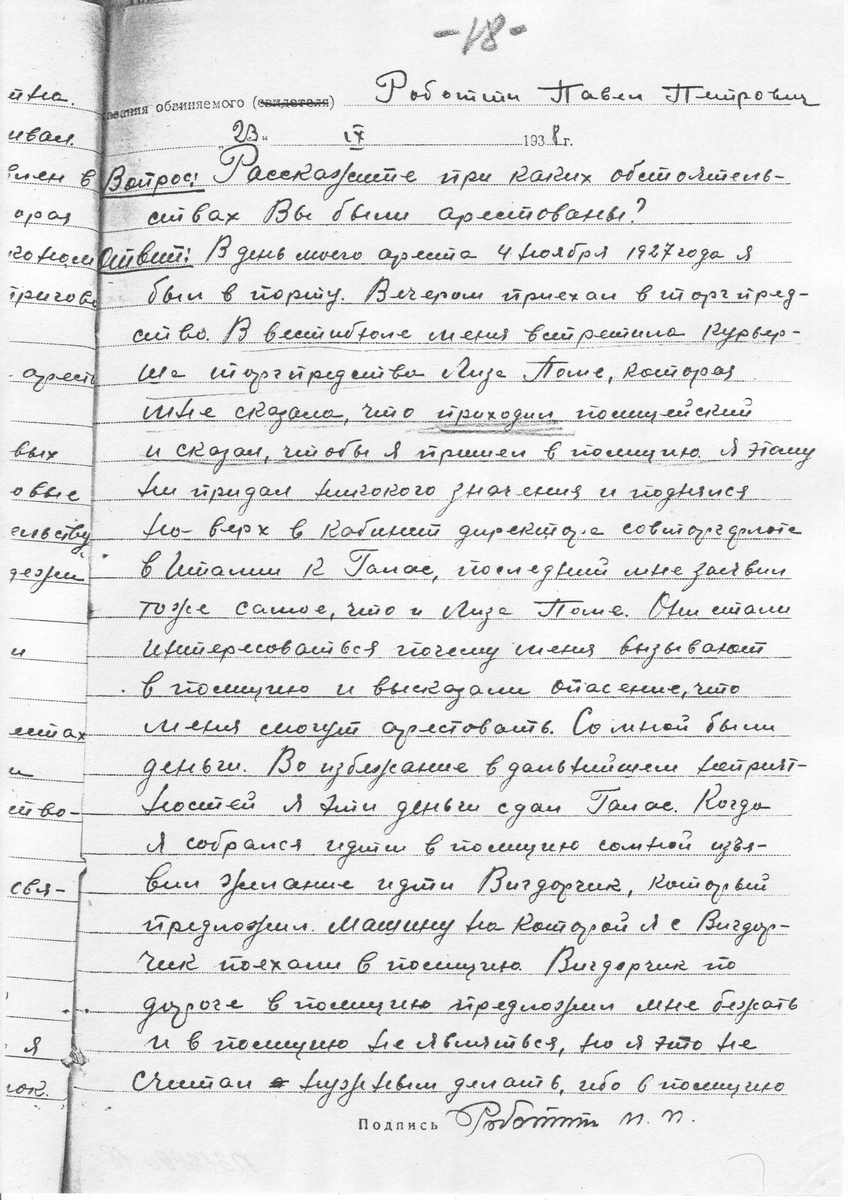 -18-
ования обвиняемого (свидетеля) Роботти Павел Петрович
„23“ IX 1938 г.
Вопрос: Расскажите при каких обстоятель-
ствах Вы были арестованы?
Ответ: В день моего ареста 4 ноября 1927 года я
был в порту. Вечером приехал в торгпред-
ство. В вестибюле меня встретила курьер-
ша торгпредства Лиза Поме, которая
мне сказала, что приходил полицейский
и сказал, чтобы я пришел в полицию. Я этому
не придал никокого значения и поднялся
на-верх в кабинет директора совторгфлота
в Италии к Галас, последний мне заявил
тоже самое, что и Лиза Поме. Они стали
интересоваться почему меня вызывают
в полицию и высказали опасение, что
меня могут арестовать. Со мной были
деньги. Во избежание в дальнейшем неприят-
ностей я эти деньги сдал Галас. Когда
я собрался идти в полицию сомной изъя-
вил желание идти Вигдорчик, который
предложил машину на которой я с Вигдор-
чик поехали в полицию. Вигдорчик по
дороге в полицию предложил мне бежать
и в полицию не являться, но я это не
считал нужным делать, ибо в полицию
Подпись Роботти П. П.
йна.
ивал.
влен в
орая
арест
вых
овые
ельству
дежи
и
ентах
и
ство-
свя-
я